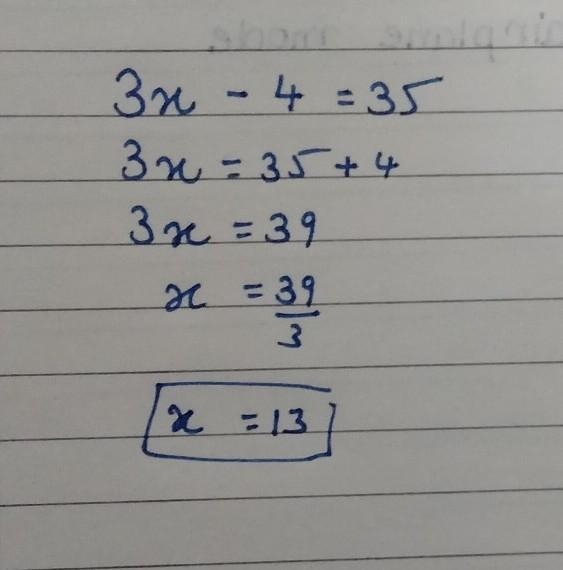 3x - 4 = 35
3x = 35 + 4
3x = 39
x = 39/3
x = 13